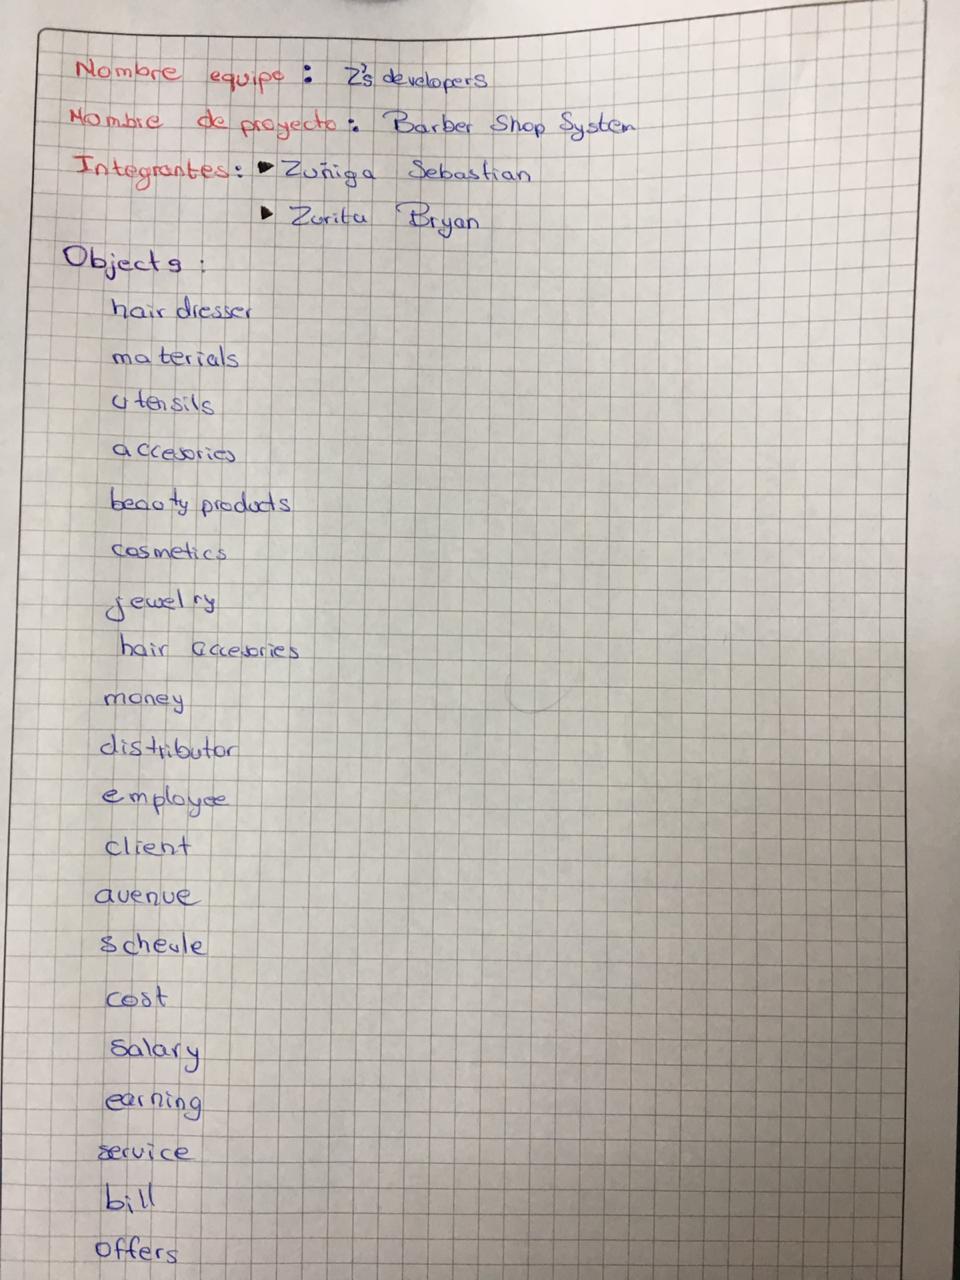 Nombre equipo: Z's developers
Nombre de proyecto: Barber Shop System
Integrantes: ► Zuñiga Sebastian
► Zurita Bryan
Objects:
hair dresser
materials
utensils
accesories
beauty products
cosmetics
jewelry
hair accesories
money
distributor
employee
client
avenue
scheule
cost
salary
earning
service
bill
offers